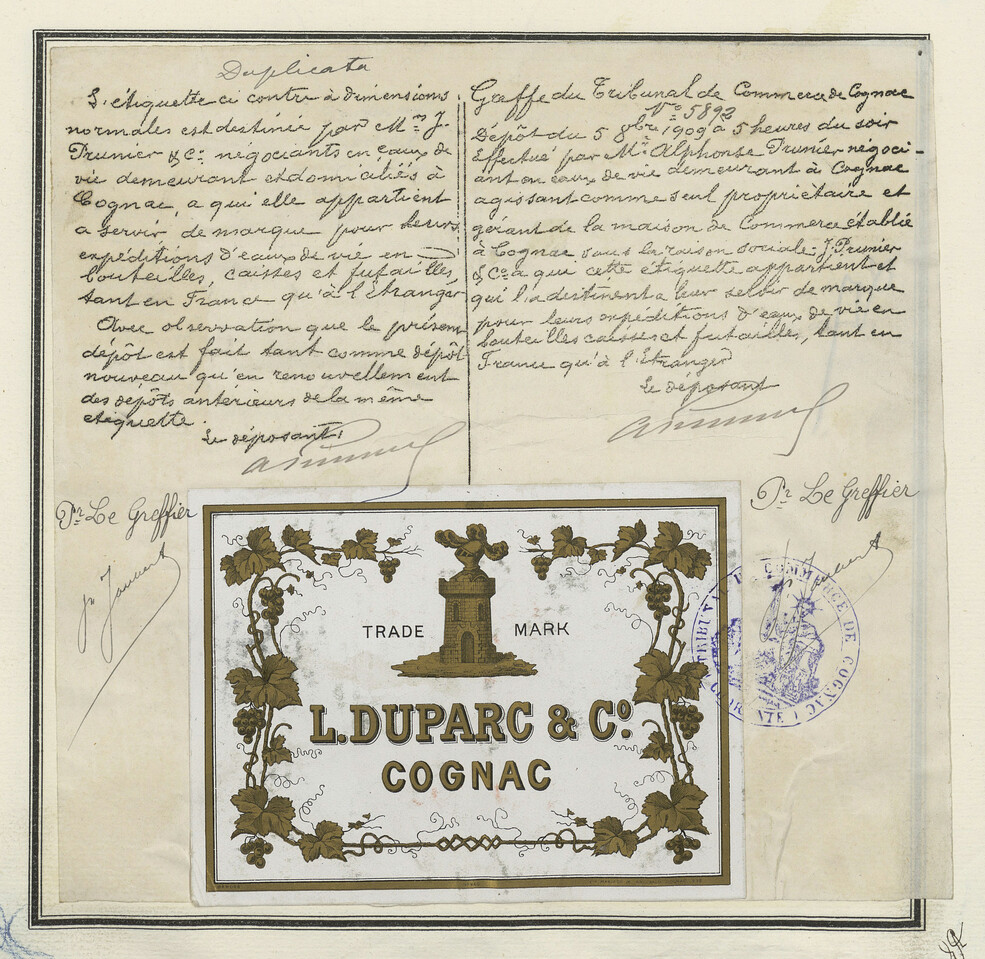 Duplicata
L'etiquette ci contre à dimensions
normales est destinée par Mrs J.
Prunier & Co négociants en eaux de
vie demeurant et domiciliés à
Cognac, a qui elle appartient
a servir de marque pour leurs
expéditions d'eaux de vie en
bouteilles, caisses et futailles,
tant en France qu'à l'Etranger
Avec observation que le présent
dépôt est fait tant comme dépôt
nouveau qu'en renouvellement
des dépôts antérieurs de la même
etiquette.
Le déposant:
APrunier
Pr Le Greffier
Greffe du Tribunal de Commerce de Cognac
No 5892
Dépôt du 5 8bre 1909 à 5 heures du soir
Effectué par Mr Alphonse Prunier négoci-
ant en eaux de vie demeurant à Cognac
agissant comme seul propriétaire et
gérant de la maison de Commerce établie
à Cognac sous la raison sociale: J. Prunier
& Co a qui cette etiquette appartient et
qui l'a destinent a leur servir de marque
pour leurs expéditions d'eaux de vie en
bouteilles caisses et futailles, tant en
France qu'à l'Etranger
Le déposant
APrunier
Pr Le Greffier
TRADE MARK
L. DUPARC & Co.
COGNAC
TRIBUNAL DE COMMERCE DE COGNAC